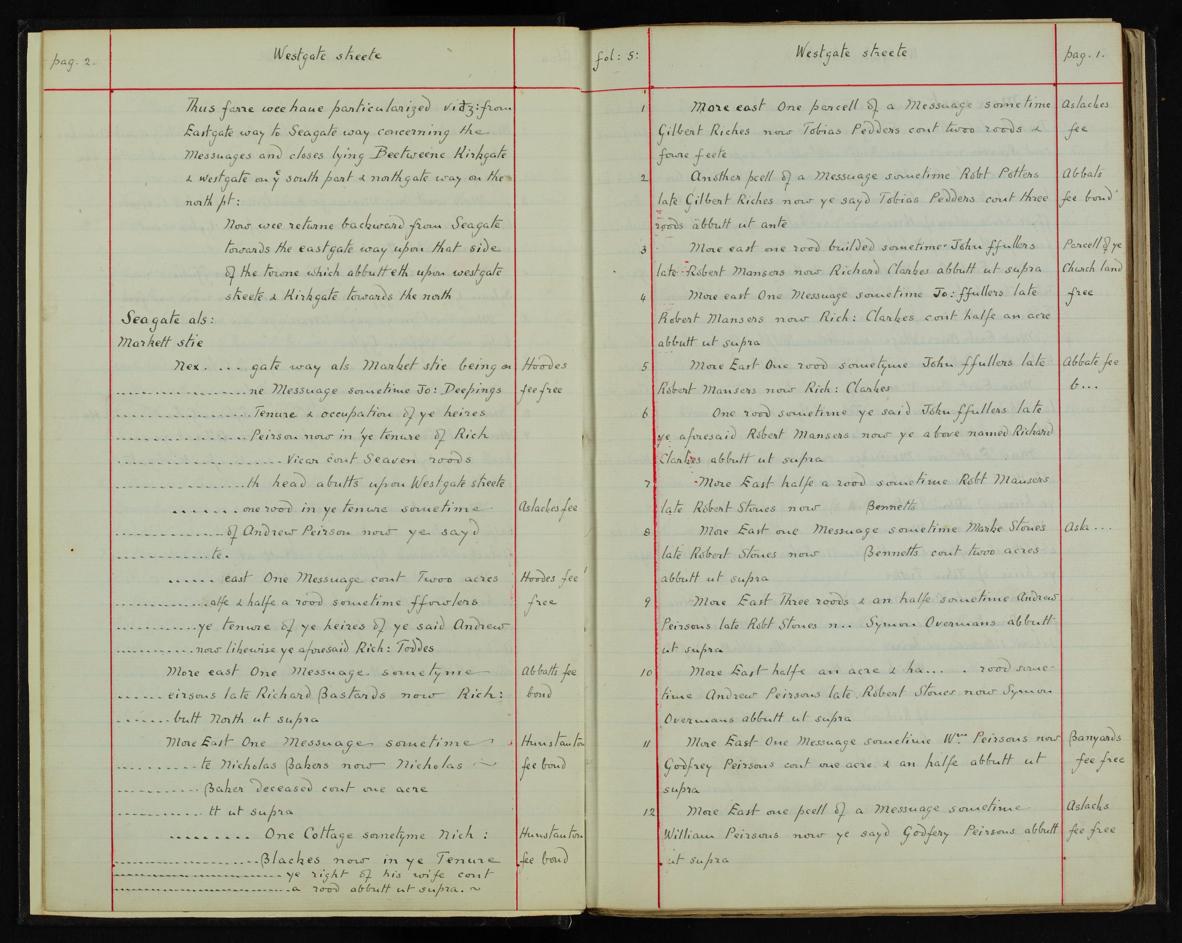 pag. 2.
Westgate streete
Thus farre wee haue particularized vidz: from
Eastgate way to Seagate way concerning the
Messuages and closes lying Beetweene Kirkgate
& westgate on ye south part & northgate way on the
north pt:
Now wee returne backward from Seagate
towards the eastgate way upon that side
of the towne which abbutteth upon westgate
streete & Kirkgate towards the north
Seagate als:
Markett stie
Nex. ... gate way als Market stie being on Hoodes
.................. ne Messuage sometime Jo: Deepings fee free
.................. Tenure & occupation of ye heires
.................. Peirson now in ye tenure of Rich
.................. Vicar cont Seaven roods
.................. th head abutts upon Westgate streete
....... one rood in ye tenure sometime Aslackes fee
............... of Andrew Peirson now ye sayd
............... te.
...... east One Messuage cont Twoo acres Hoodes fee
............. alfe & halfe a rood sometime ffowlers free
............ ye tenure of ye heires of ye said Andrew
............ now likewise ye aforesaid Rich: Toddes
More east One Messuage sometyme Abbotts fee
...... eirsons late Richard Bastards now Rich: bond
....... butt North ut supra
More East One Messuage sometime Hunstanton
............ te Nicholas Bakers now Nicholas ~ fee bond
............ Baker deceased cont one acre
............ tt ut supra
......... One Cottage sometyme Nich: Hunstanton
.................. Blackes now in ye Tenure fee bond
.................. ye right of his wife cont
.................. a rood abbutt ut supra. ~
fol: 5:
Westgate streete
pag. 1.
1 More east One parcell of a Messuage sometime Aslackes
Gilbert Riches now Tobias Pedders cont twoo roods & fee
fowre feete
2 Another pcell of a Messuage sometime Robt Potters Abbats
late Gilbert Riches now ye sayd Tobias Pedders cont three fee bond
roods abbutt ut ante
3 More east one rood builded sometime John ffullers Parcell of ye
late Robert Mansers now Richard Clarkes abbutt ut supra Church land
4 More east One Messuage sometime Jo: ffullers late free
Robert Mansers now Rich: Clarkes cont halfe an acre
abbutt ut supra
5 More East One rood sometyme John ffullers late Abbats fee
Robert Mansers now Rich: Clarkes b...
6 One rood sometime ye said John ffullers late
ye aforesaid Robert Mansers now ye above named Richard
Clarkes abbutt ut supra
7 More East halfe a rood sometime Robt Mansers
late Robert Stones now Bennetts
8 More East one Messuage sometime Marke Stones Asla ...
late Robert Stones now Bennetts cont twoo acres
abbutt ut supra
9 More East Three roods & an halfe sometime Andrew
Peirsons late Robt Stones n.. Symon Overmans abbutt
ut supra
10 More East halfe an acre & ha... . rood some-
time Andrew Peirsons late Robert Stones now Symon
Overmans abbutt ut supra
11 More East One Messuage sometime Wm Peirsons now Banyards
Godfrey Peirsons cont one acre & an halfe abbutt ut fee free
supra
12 More East one pcell of a Messuage sometime Aslacks
William Peirsons now ye sayd Godfery Peirsons abbutt fee free
ut supra